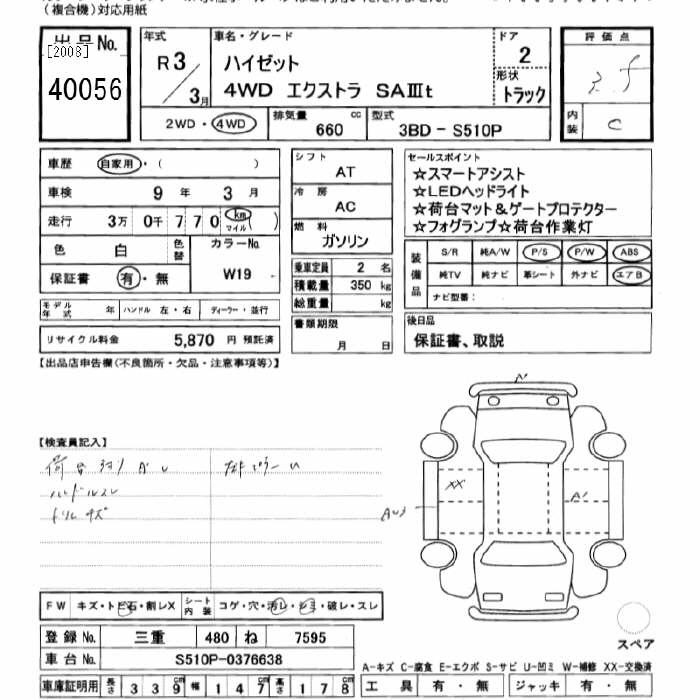 (複合機)対応用紙
出品No.
[2008]
40056
年式
R3/3月
車名・グレード
ハイゼット
4WD エクストラ SAⅢt
ドア
2
形状
トラック
評価点
内装
C
2WD・4WD
排気量
660 cc
型式
3BD-S510P
車歴
自家用・( )
車検
9 年 3 月
走行
3万 0千 7 7 0 km マイル
色
白
色替
カラーNo.
W19
保証書
有・無
モデル年式 年
ハンドル 左・右
ディーラー・並行
リサイクル料金 5,870 円 預託済
シフト
AT
冷房
AC
燃料
ガソリン
乗車定員 2 名
積載量 350 kg
総重量 kg
書類期限
月 日
セールスポイント
☆スマートアシスト
☆LEDヘッドライト
☆荷台マット&ゲートプロテクター
☆フォグランプ☆荷台作業灯
装備品
S/R 純A/W P/S P/W ABS
純TV 純ナビ 革シート 外ナビ エアB
ナビ型番:
後日品
保証書、取説
【出品店申告欄(不良箇所・欠品・注意事項等)】
【検査員記入】
荷台
ハンドルスレ
A
XX
A1
FW キズ・トビ石・割レX
シート内装 コゲ・穴・汚レ・シミ・破レ・スレ
登録No. 三重 480 ね 7595
車台No. S510P-0376638
車庫証明用 長さ 339cm 幅 147cm 高さ 178cm
スペア
A-キズ C-腐食 E-エクボ S-サビ U-凹ミ W-補修 XX-交換済
工具 有・無 ジャッキ 有・無